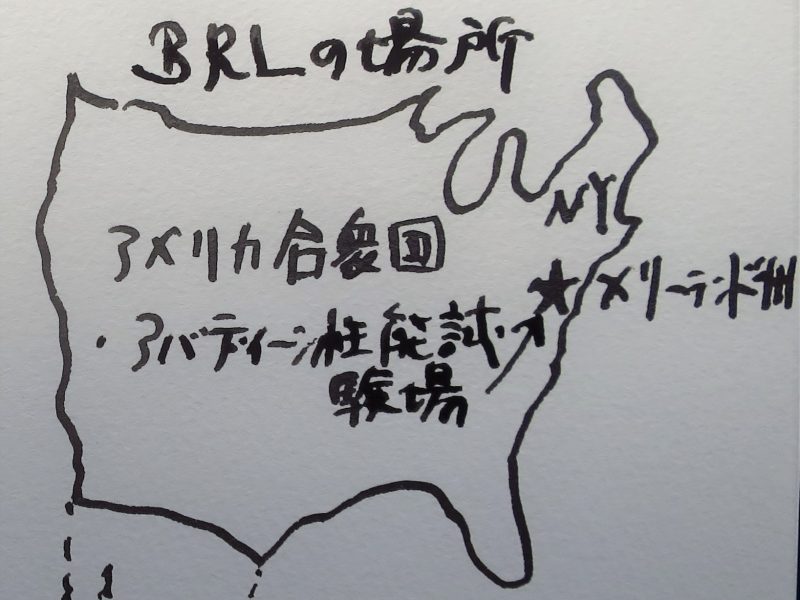 BRLの場所
NY
アメリカ合衆国
メリーランド州
・アバディーン性能試
験場